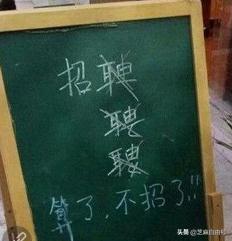 招聘
聘
聘
算了,不招了!!
头条 @芝麻自由行